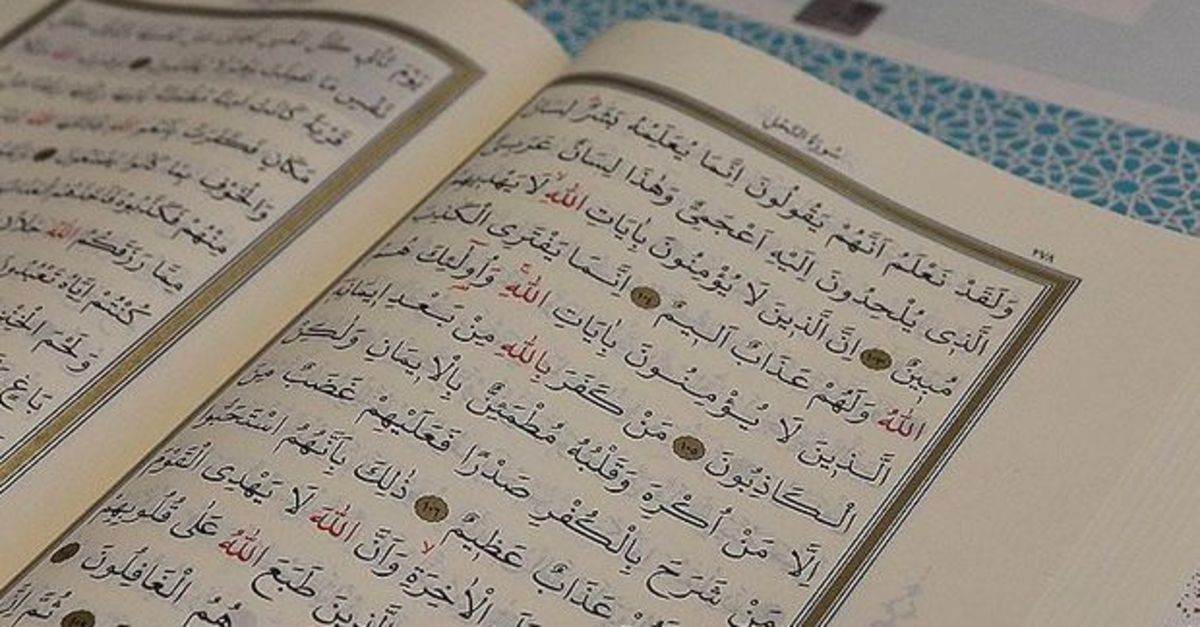 سُورَةُ النَّحْلِ
٢٧٨
وَلَقَدْ نَعْلَمُ اَنَّهُمْ يَقُولُونَ اِنَّمَا يُعَلِّمُهُ بَشَرٌ لِسَانُ
الَّذ۪ي يُلْحِدُونَ اِلَيْهِ اَعْجَمِيٌّ وَهٰذَا لِسَانٌ عَرَبِيٌّ
مُب۪ينٌ ١٠٣ اِنَّ الَّذ۪ينَ لَا يُؤْمِنُونَ بِاٰيَاتِ اللّٰهِ لَا يَهْد۪يهِمُ
اللّٰهُ وَلَهُمْ عَذَابٌ اَل۪يمٌ ١٠٤ اِنَّمَا يَفْتَرِي الْكَذِبَ
الَّذ۪ينَ لَا يُؤْمِنُونَ بِاٰيَاتِ اللّٰهِ وَاُو۬لٰٓئِكَ هُمُ
الْكَاذِبُونَ ١٠٥ مَنْ كَفَرَ بِاللّٰهِ مِنْ بَعْدِ ا۪يمَانِه۪
اِلَّا مَنْ اُكْرِهَ وَقَلْبُهُ مُطْمَئِنٌّ بِالْا۪يمَانِ وَلٰكِنْ
مَنْ شَرَحَ بِالْكُفْرِ صَدْرًا فَعَلَيْهِمْ غَضَبٌ مِنَ
عَذَابٌ عَظ۪يمٌ ١٠٦ ذٰلِكَ بِاَنَّهُمُ اسْتَحَبُّوا
الْاٰخِرَةِ وَاَنَّ اللّٰهَ لَا يَهْدِي الْقَوْمَ
الَّذ۪ينَ طَبَعَ اللّٰهُ عَلٰى قُلُوبِهِمْ
هُمُ الْغَافِلُونَ
ثُمَّ
يَوْمَ تَأْت۪ي كُلُّ نَفْسٍ
نَفْسٍ مَا عَمِلَتْ وَهُمْ لَا يُظْلَمُونَ
قَرْيَةً كَانَتْ اٰمِنَةً
مَكَانٍ فَكَفَرَتْ بِاَنْعُمِ اللّٰهِ
وَالْخَوْفِ بِمَا كَانُوا يَصْنَعُونَ
مِنْهُمْ فَكَذَّبُوهُ فَاَخَذَهُمُ
مِمَّا رَزَقَكُمُ اللّٰهُ حَلَالًا
كُنْتُمْ اِيَّاهُ تَعْبُدُونَ
وَلَحْمَ
بَاغٍ